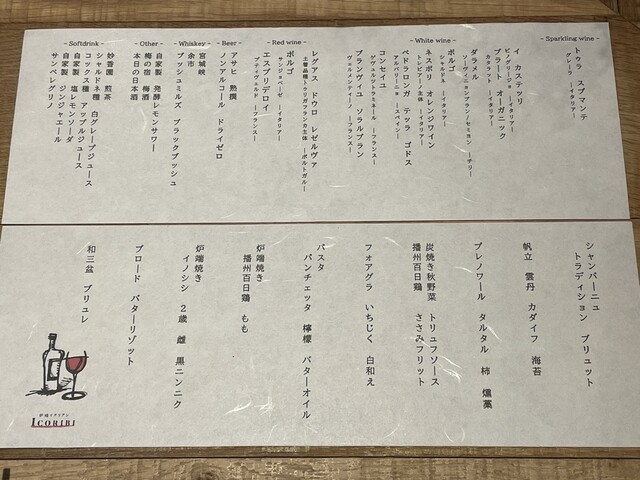 - Sparkling wine -
トゥラ スプマンテ
グレーラ ーイタリアー
- White wine -
イ カステッリ
ピノグリージョ ーイタリアー
プラート オーガニック
カタラット ーイタリアー
ダラメル
ソーヴィニヨンブラン/セミヨン ーチリー
ボルゴ
シャルドネ ーイタリアー
ネスポリ オレンジワイン
トレビアーノ主体 ーイタリアー
ペドラロンガ テッラ ゴドス
アルバリーニョ ースペインー
コンセイユ
ゲヴュルツトラミネール ーフランスー
ブランヴィユ ソラルブラン
ヴェルメンティーノ ーフランスー
- Red wine -
レグアス ドウロ レゼルヴァ
土着品種トウリガフランカ主体 ーポルトガルー
ボルゴ
サンジョベーゼ ーイタリアー
エスプリデロイ
プティヴェルド ーフランスー
- Beer -
アサヒ 熟撰
ノンアルコール ドライゼロ
- Whiskey -
宮城峡
余市
ブッシュミルズ ブラックブッシュ
- Other -
自家製 発酵レモンサワー
梅の宿 梅酒
本日の日本酒
- Softdrink -
妙香園 煎茶
シャルドネ種 白グレープジュース
コックス種 アップルジュース
自家製 塩レモンソーダ
自家製 ジンジャエール
サンペレグリノ
シャンパーニュ
トラディション ブリュット
帆立 雲丹 カダイフ 海苔
プレノワール タルタル 柿 燻藁
炭焼き秋野菜 トリュフソース
播州百日鶏 ささみフリット
フォアグラ いちじく 白和え
パスタ
パンチェッタ 檸檬 バターオイル
炉端焼き
播州百日鶏 もも
炉端焼き
イノシシ 2歳 雌 黒ニンニク
ブロード バターリゾット
和三盆 ブリュレ
炉端イタリアン
ICORIBI